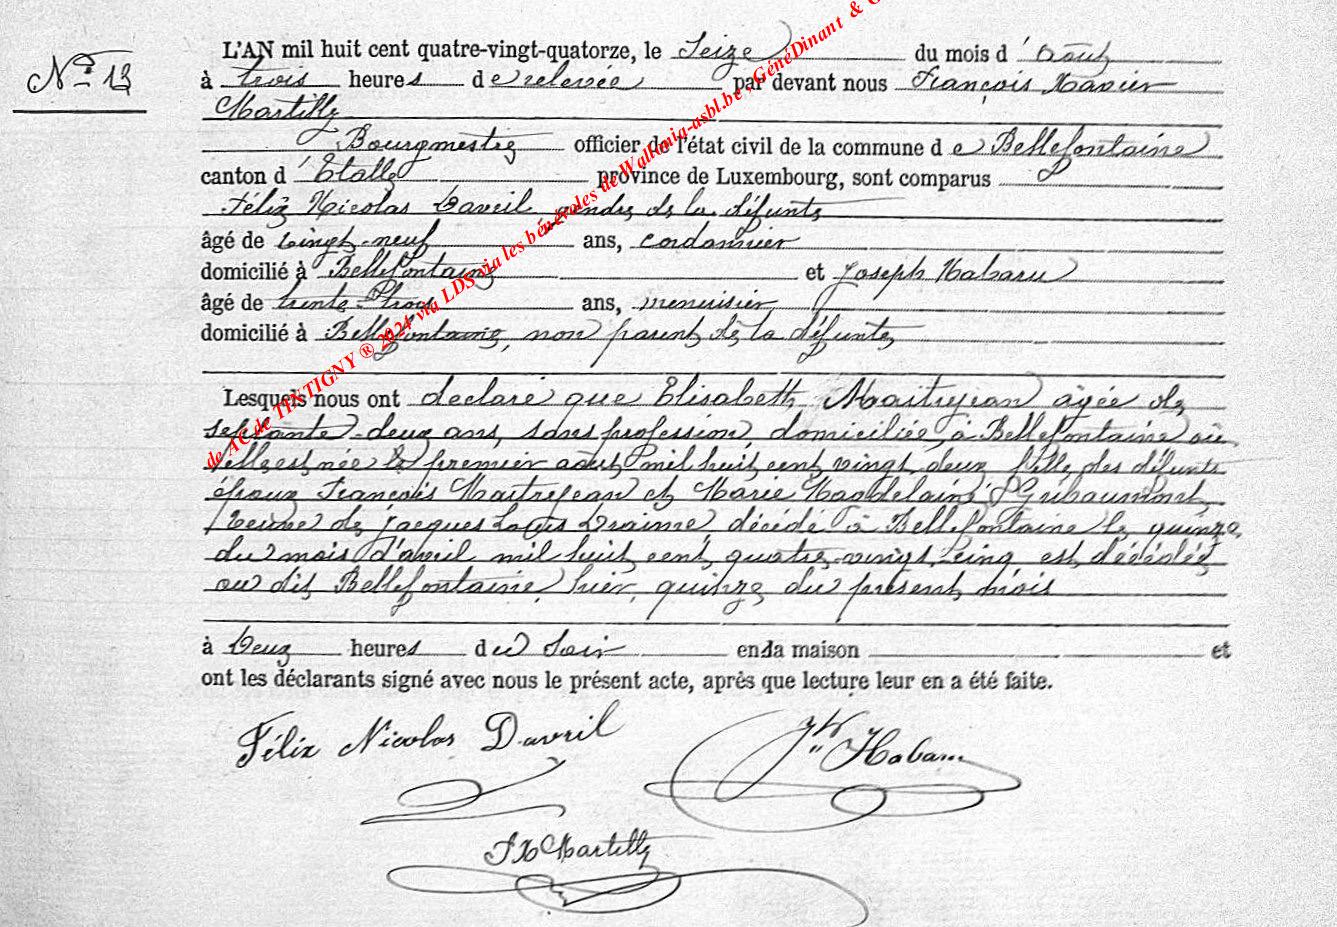 N° 13
L'AN mil huit cent quatre-vingt-quatorze, le Seize du mois d'Août
à trois heures de relevée par devant nous François Xavier
Martilly
Bourgmestre officier de l'état civil de la commune de Bellefontaine
canton d'Etalle province de Luxembourg, sont comparus
Félix Nicolas Davril gendre de la défunte
âgé de vingt-neuf ans, cordonnier
domicilié à Bellefontaine et Joseph Habaru
âgé de trente-trois ans, menuisier
domicilié à Bellefontaine, non parent de la défunte
Lesquels nous ont déclaré que Elisabeth Maitrejean âgée de
septante-deux ans, sans profession, domiciliée à Bellefontaine où
elle est née le premier août mil huit cent vingt deux fille des défunts
époux François Maitrejean et Marie Magdelaine
veuve de Jacques Louis décédé à Bellefontaine le quinze
du mois d'avril mil huit cent quatre-vingt cinq est décédée
au dit Bellefontaine hier, quinze du présent mois
à Deux heures du Soir en la maison et
ont les déclarants signé avec nous le présent acte, après que lecture leur en a été faite.
Félix Nicolas Davril
Jh Habaru
FX Martilly
de AC de TINTIGNY ® 2024 via LDS via les bénévoles de Wallonia-asbl.be - GénéDinant &